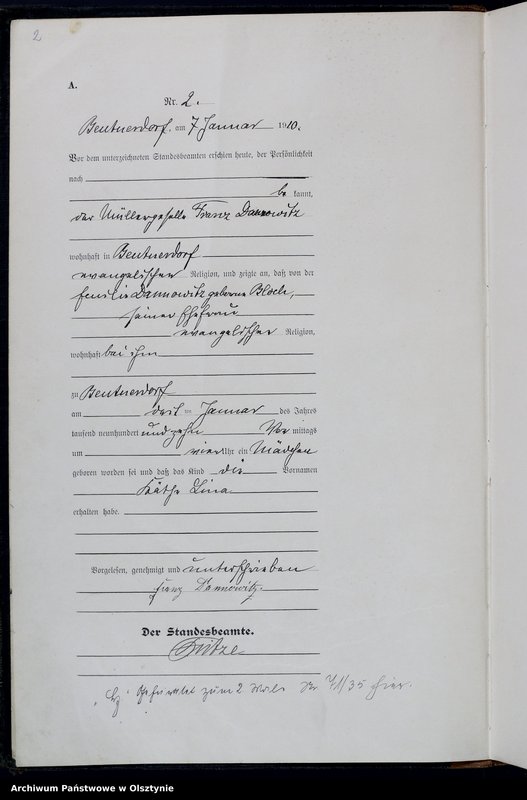 2
A.
Nr. 2.
Beutnerdorf, am 7 Januar 1910.
Vor dem unterzeichneten Standesbeamten erschien heute, der Persönlichkeit
nach
be kannt,
der Müllergeselle Franz Dannowitz
wohnhaft in Beutnerdorf
evangelischer Religion, und zeigte an, daß von der
Emilie Dannowitz geborene Bloch,
seiner Ehefrau
evangelischer Religion,
wohnhaft bei ihm
zu Beutnerdorf
am drei ten Januar des Jahres
tausend neunhundert und zehn Vor mittags
um vier Uhr ein Mädchen
geboren worden sei und daß das Kind die Vornamen
Käthe Lina
erhalten habe.
Vorgelesen, genehmigt und unterschrieben
Franz Dannowitz.
Der Standesbeamte.
geheiratet zum 2 Mal Nr 71/35 hier.
Archiwum Państwowe w Olsztynie